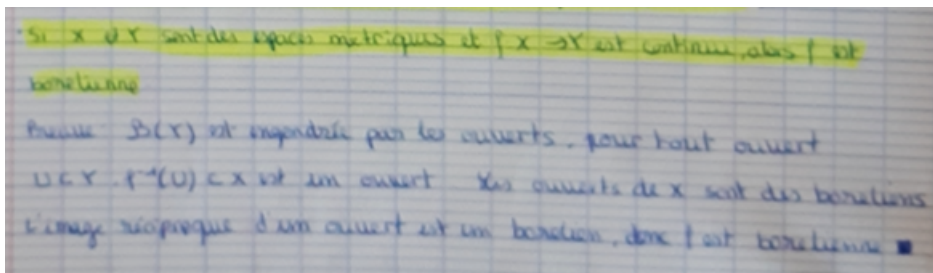 Si X et Y sont des espaces métriques et f X → Y est continue, alors f est
borélienne
Preuve B(Y) est engendrée par les ouverts. pour tout ouvert
U ⊂ Y. f⁻¹(U) ⊂ X est un ouvert les ouverts de X sont des boréliens
L'image réciproque d'un ouvert est un borélien, donc f est borélienne ■